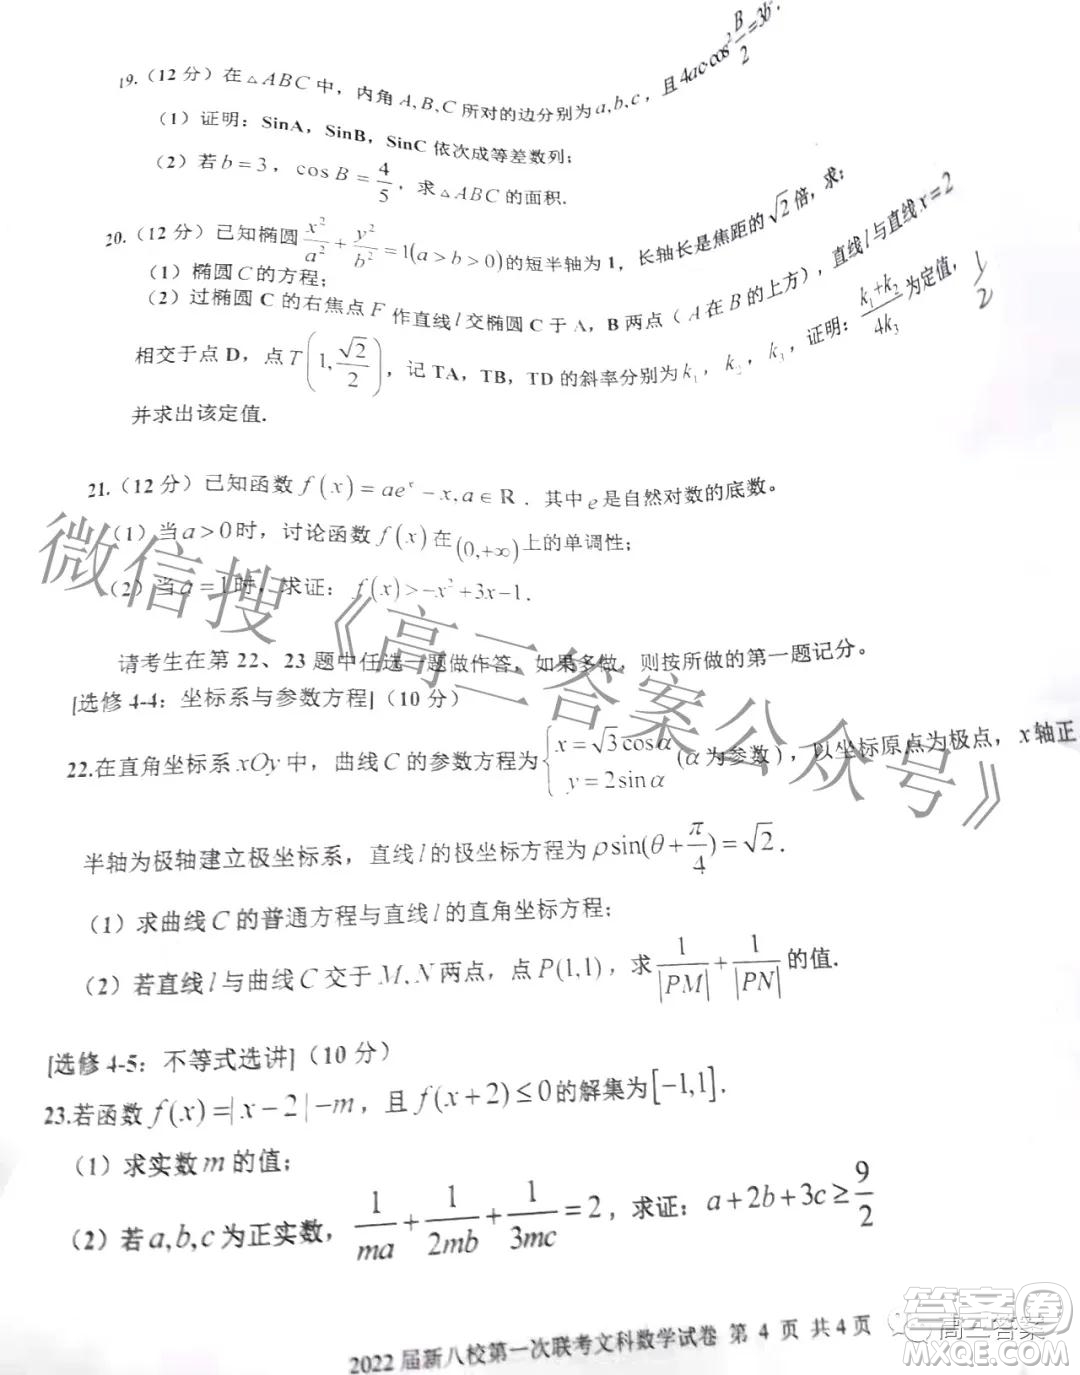 19.（12分）在△ABC中，内角A,B,C所对的边分别为a,b,c，且4ac·cos²B/2=3b².
（1）证明：SinA，SinB，SinC依次成等差数列；
（2）若b=3，cosB=4/5，求△ABC的面积.
20.（12分）已知椭圆x²/a²+y²/b²=1(a>b>0)的短半轴为1，长轴长是焦距的√2倍，求：
（1）椭圆C的方程；
（2）过椭圆C的右焦点F作直线l交椭圆C于A，B两点（A在B的上方），直线l与直线x=2
相交于点D，点T(1,√2/2)，记TA，TB，TD的斜率分别为k₁，k₂，k₃，证明：(k₁+k₂)/4k₃为定值，
1/2
并求出该定值.
21.（12分）已知函数f(x)=aeˣ−x,a∈R．其中e是自然对数的底数。
（1）当a>0时，讨论函数f(x)在(0,+∞)上的单调性；
（2）当a=1时，求证：f(x)>−x²+3x−1．
请考生在第22、23题中任选一题做作答，如果多做，则按所做的第一题记分。
[选修4-4：坐标系与参数方程]（10分）
22.在直角坐标系xOy中，曲线C的参数方程为{x=√3cosα y=2sinα(α为参数)，以坐标原点为极点，x轴正
半轴为极轴建立极坐标系，直线l的极坐标方程为ρsin(θ+π/4)=√2．
（1）求曲线C的普通方程与直线l的直角坐标方程；
（2）若直线l与曲线C交于M,N两点，点P(1,1)，求1/|PM|+1/|PN|的值.
[选修4-5：不等式选讲]（10分）
23.若函数f(x)=|x−2|−m，且f(x+2)≤0的解集为[−1,1]．
（1）求实数m的值；
（2）若a,b,c为正实数，1/ma+1/2mb+1/3mc=2，求证：a+2b+3c≥9/2
2022届新八校第一次联考文科数学试卷 第4页 共4页
微信搜《高三答案公众号》
高三答案
答案圈
MXQE.COM